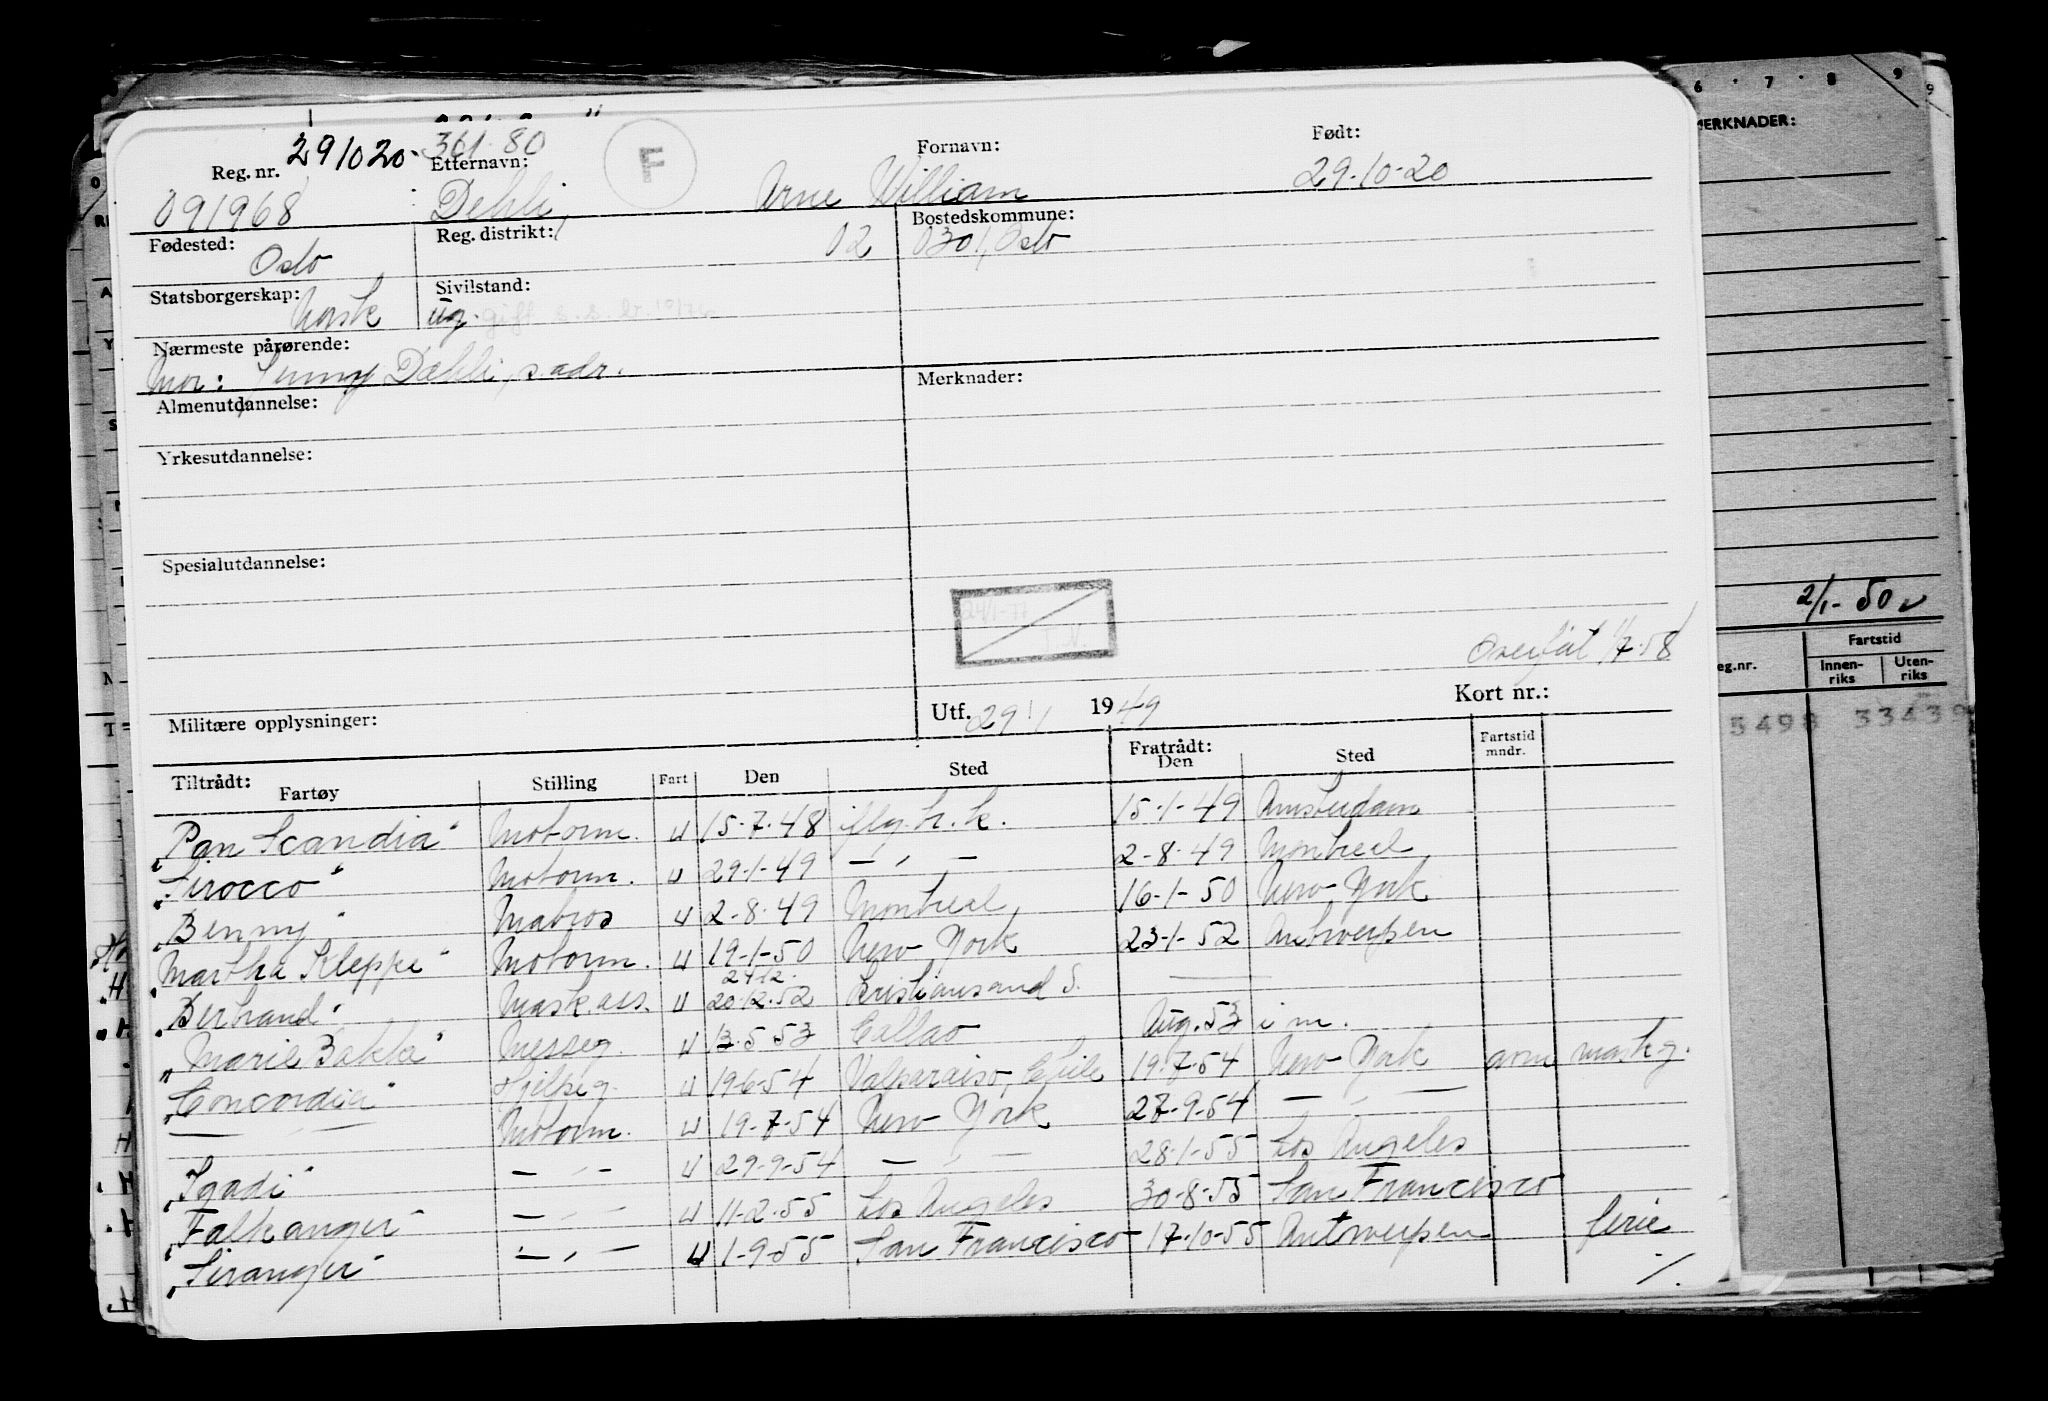 291020. 361.80
Reg. nr. Etternavn: F Fornavn: Født:
091968 Dehli, Arne William 29.10.20
Fødested: Reg. distrikt: 02 Bostedskommune:
Oslo 0301, Oslo
Statsborgerskap: Norsk Sivilstand:
ug. gift
Nærmeste pårørende:
Mor: Dæhli, s. adr.
Almenutdannelse: Merknader:
Yrkesutdannelse:
Spesialutdannelse:
24/1-77
Overført 1/7.58
Militære opplysninger: Utf. 29/1 1949 Kort nr.:
Tiltrådt: Fratrådt:
Fartøy Stilling Fart Den Sted Den Sted Fartstid mndr.
"Pan Scandia" Motorm. U 15.7.48 15-1-49 Amsterdam
"Sirocco" Motorm. U 29-1-49 — , — 2-8-49 Montreal
"Benny" Matros U 2-8-49 Montreal, 16-1-50 New York
"Martha Kleppe" Motorm. U 19-1-50 New York 23-1-52 Antwerpen
"Bertrand" Mask.ass. U 24.12. 20.12.52 Kristiansand S. —
"Marie Bakke" Messeg. U 13.5.53 Callao Aug. 53 i m.
"Concordia" Hjelpeg. U 19-6-54 Valparaiso, Chile 19.7.54 New York
— — Motorm. U 19-7-54 New York 27-9-54 — , —
"Igadi" — , — U 29-9-54 — , — 28-1-55 Los Angeles
"Falkanger" — , — U 11-2-55 Los Angeles 30-8-55 San Francisco
"Siranger" — , — U 1-9-55 San Francisco 17-10-55 Antwerpen ferie
6 7 8 9
9
MERKNADER:
2/1-50
eg.nr. Fartstid
Innenriks Utenriks
5498 33439